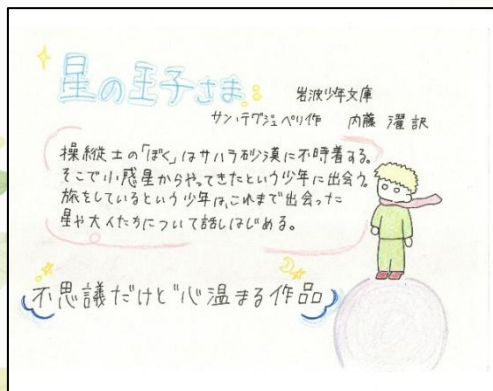 星の王子さま
岩波少年文庫
サン・テグジュペリ作 内藤 濯 訳
操縦士の「ぼく」はサハラ砂漠に不時着する。
そこで小惑星からやってきたという少年に出会う。
旅をしているという少年は、これまで出会った
星や大人たちについて話しはじめる。
不思議だけど心温まる作品